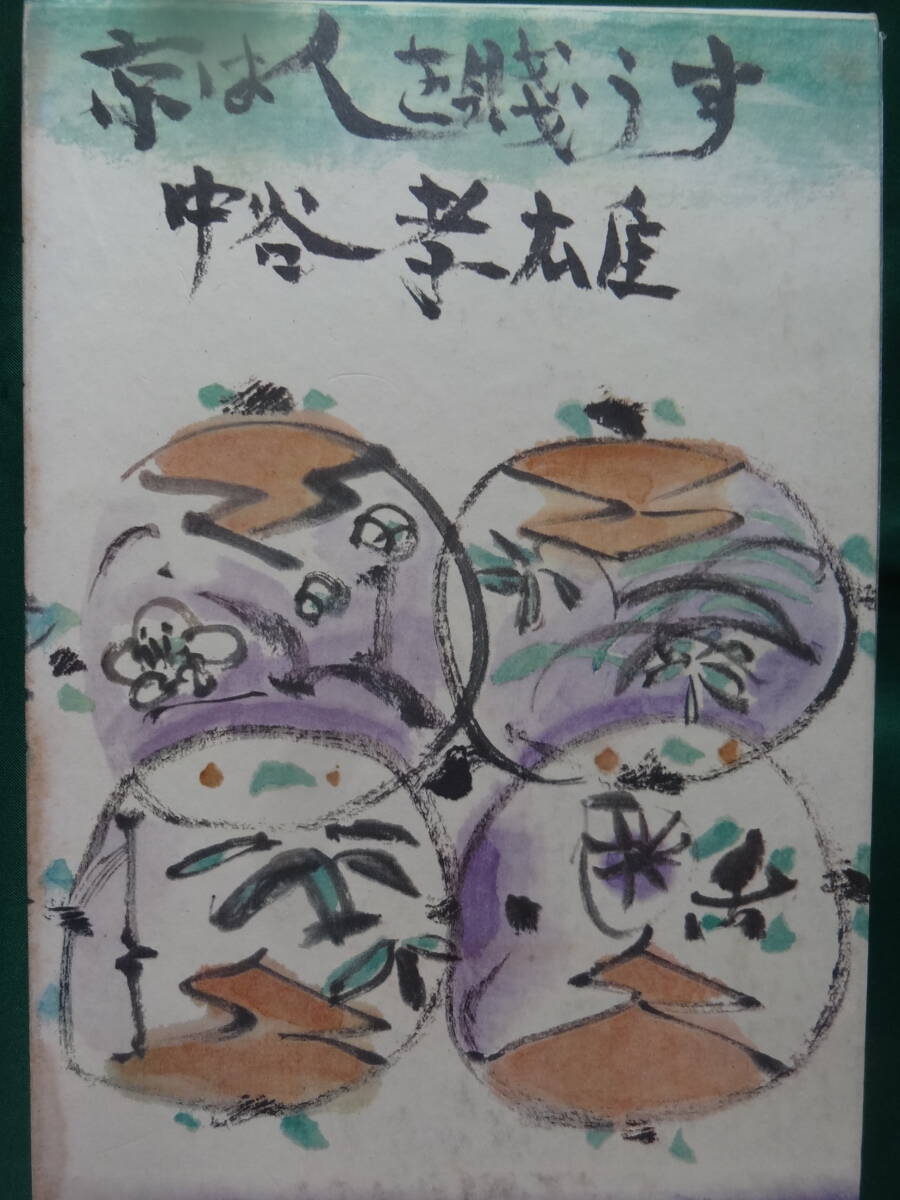 京は人を賤うす
中谷孝雄